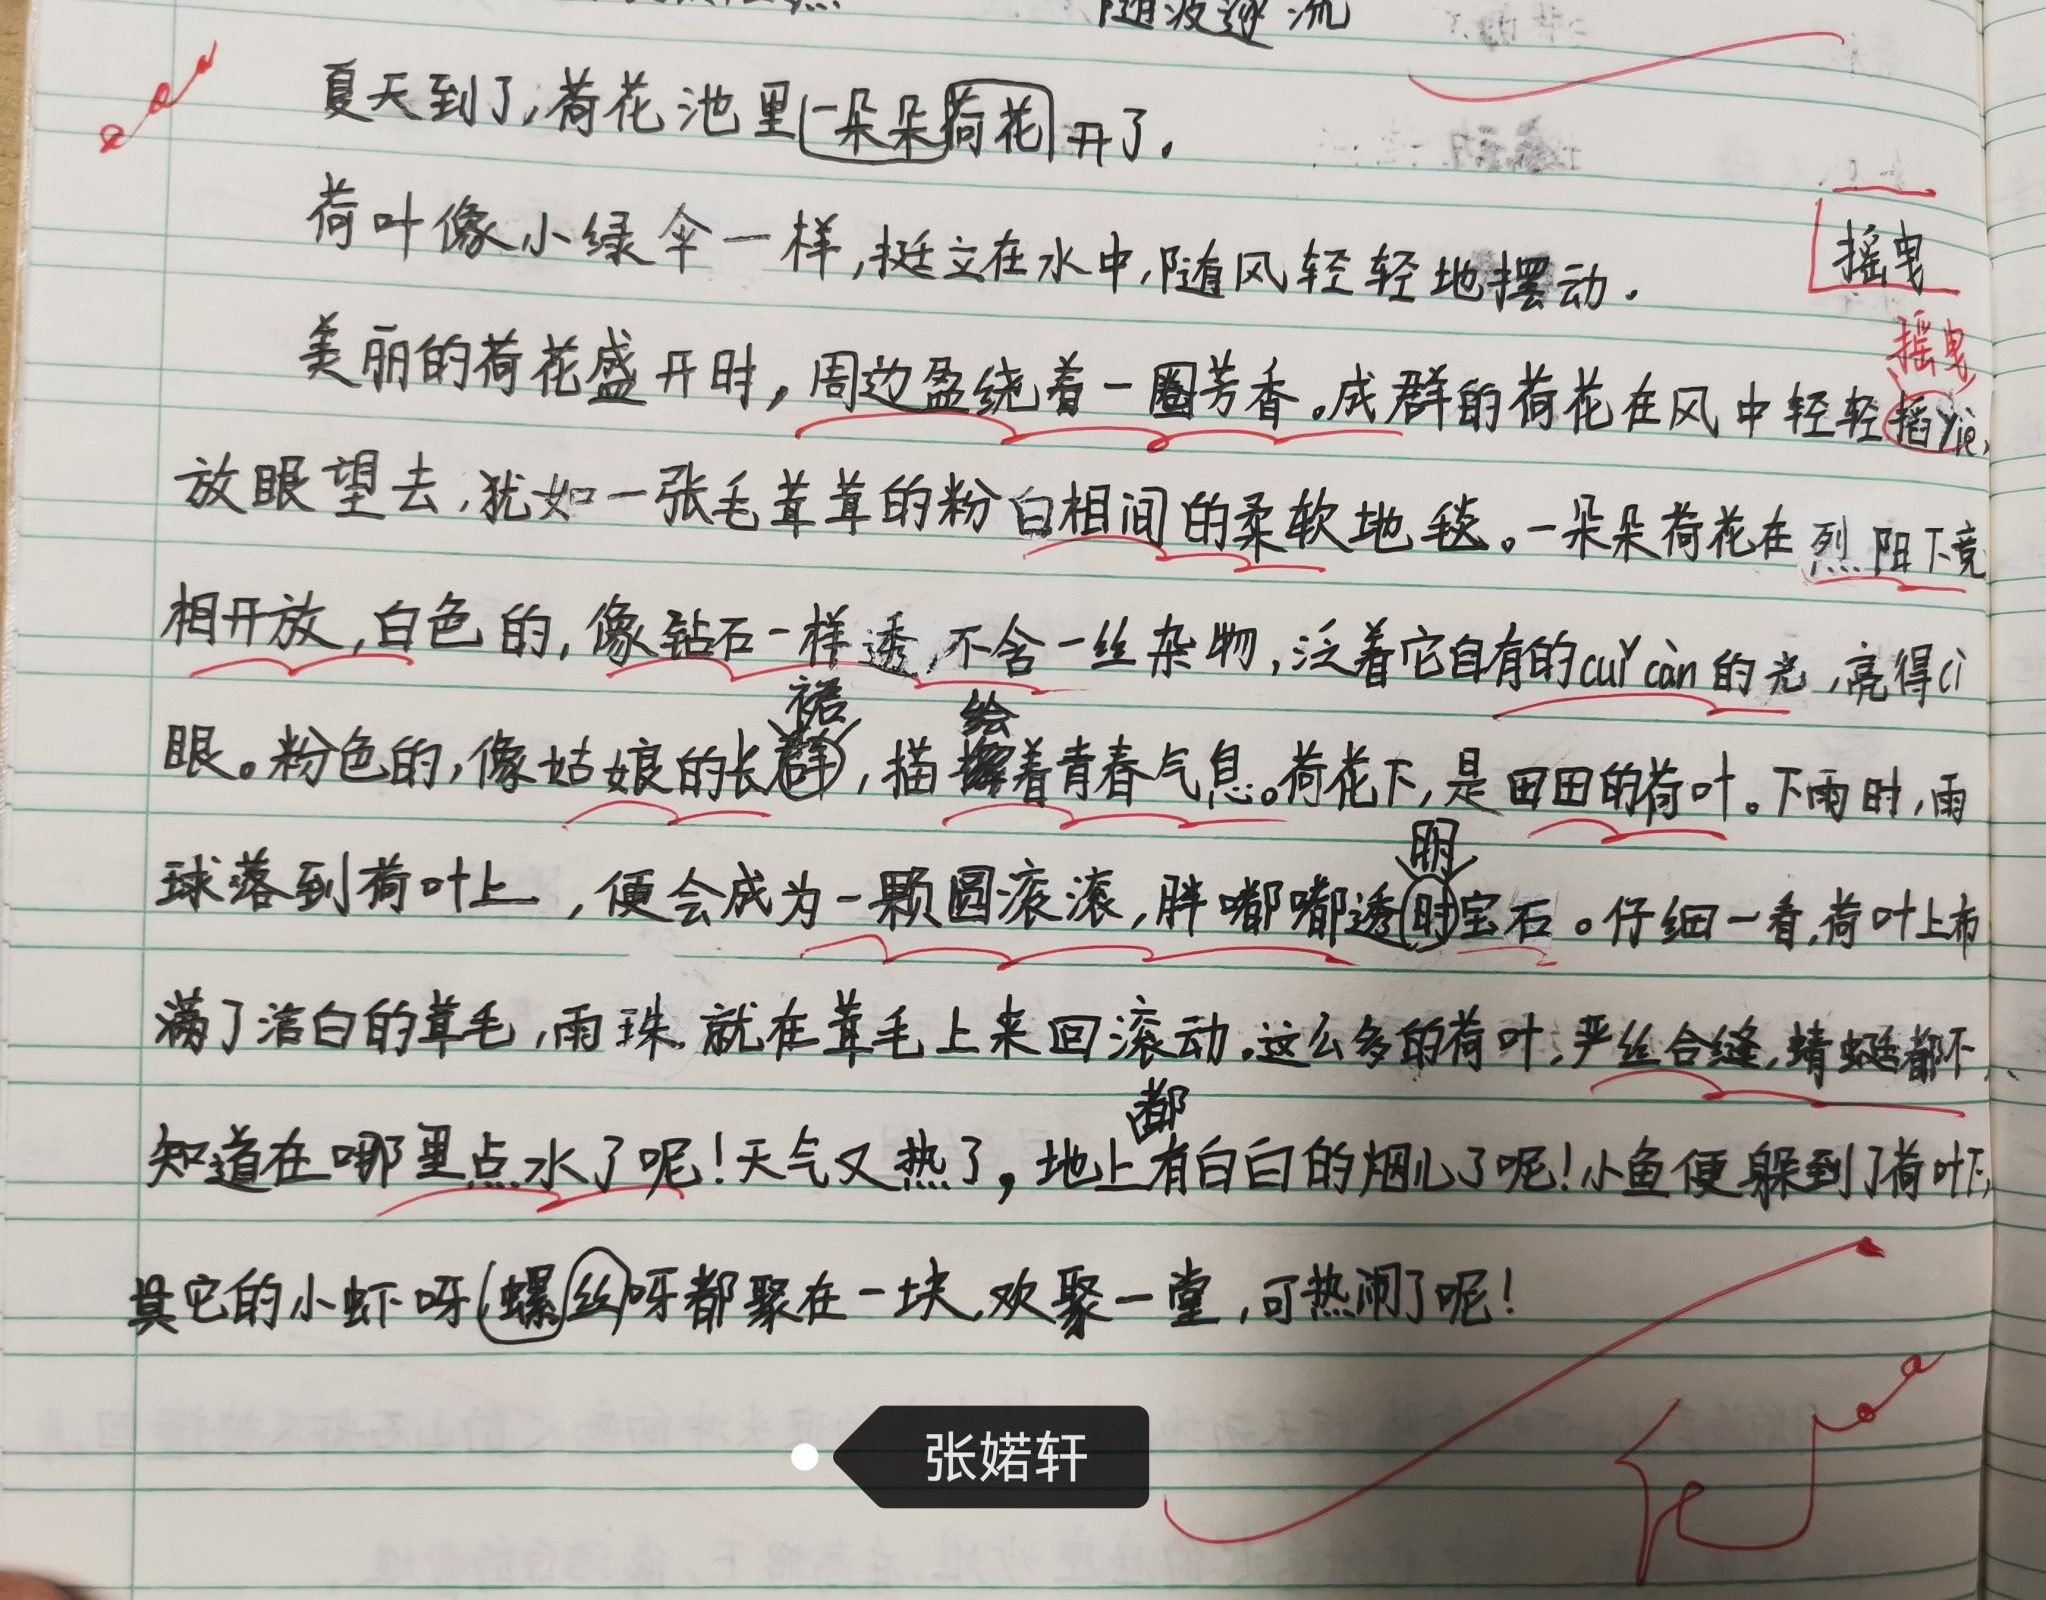 随波逐流
夏天到了,荷花池里一朵朵荷花开了.
荷叶像小绿伞一样,挺立在水中,随风轻轻地摆动.
摇曳
摇曳
美丽的荷花盛开时,周边盈绕着一圈芳香。成群的荷花在风中轻轻摇yiè,
放眼望去,犹如一张毛茸茸的粉白相间的柔软地毯。一朵朵荷花在烈阳下竞
相开放,白色的,像钻石一样透,不含一丝杂物,泛着它自有的cuǐ càn的光,亮得cì
裙 绘
眼。粉色的,像姑娘的长群,描着青春气息。荷花下,是田田的荷叶。下雨时,雨
明
球落到荷叶上,便会成为一颗圆滚滚,胖嘟嘟透时宝石。仔细一看,荷叶上布
满了洁白的茸毛,雨珠就在茸毛上来回滚动.这么多的荷叶,严丝合缝,蜻蜓都不
都
知道在哪里点水了呢!天气又热了,地上有白白的烟儿了呢!小鱼便躲到了荷叶下,
其它的小虾呀螺丝呀都聚在一块,欢聚一堂,可热闹了呢!
张婼轩